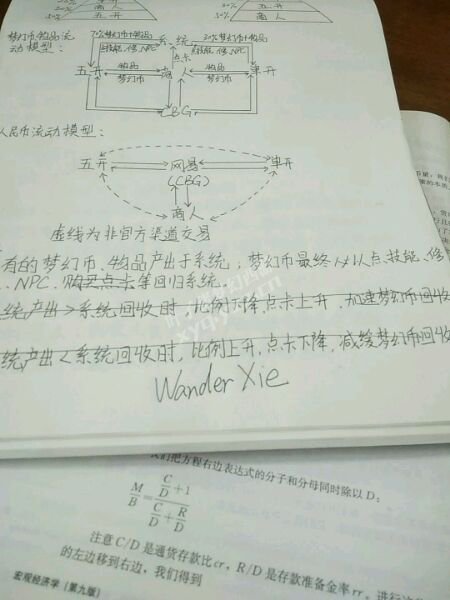 20%
商人
30%
五开
50%
商人
梦幻币、物品流
动模型:
70%梦幻币+物品
系 统
30%梦幻币+物品
点卡
五开
物品
梦幻币
商人
物品
梦幻币
单开
CBG
人民币流动模型:
五开
网易
(CBG)
单开
商人
虚线为非官方渠道交易
有的梦幻币、物品产出于系统;梦幻币最终以从点、技能、修
、NPC、购买点卡等回归系统.
统产出>系统回收时,比例下降,点卡上升,加速梦幻币回收
统产出<系统回收时,比例上升,点卡下降,减缓梦幻币回收
Wander Xie
我们把方程右边表达式的分子和分母同时除以 D:
M/B = (C/D + 1)/(C/D + R/D)
注意 C/D 是通货存款比cr,R/D 是存款准备金率rr。进行这
的左边移到右边,我们得到
宏观经济学(第九版)